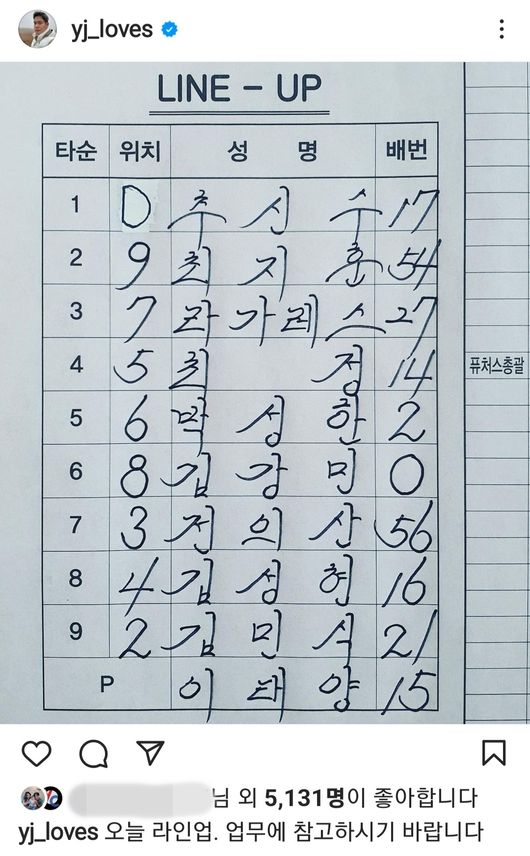 yj_loves
LINE - UP
타순 위치 성 명 배번
1 D 추 신 수 17
2 9 최 지 훈 54
3 7 라 가 레 스 27
4 5 최 정 14
퓨처스총괄
5 6 박 성 한 2
6 8 김 강 민 0
7 3 전 의 산 56
8 4 김 성 현 16
9 2 김 민 식 21
P 이 태 양 15
님 외 5,131명이 좋아합니다
yj_loves 오늘 라인업. 업무에 참고하시기 바랍니다